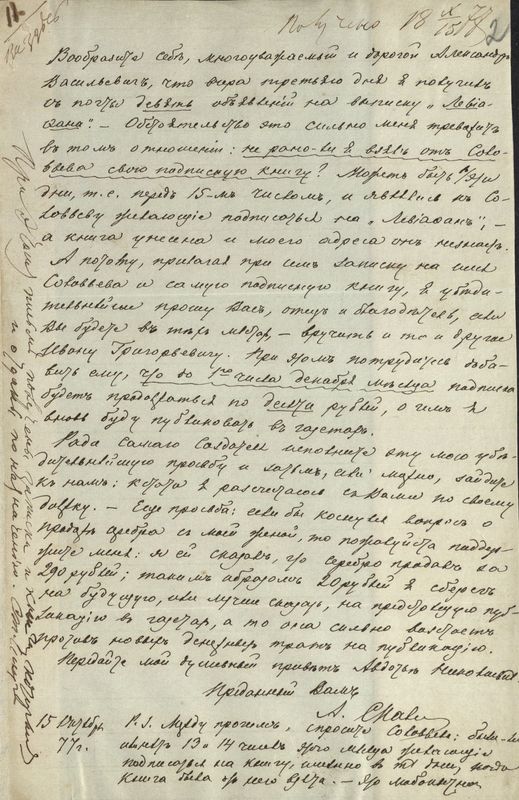 11.
Получено 18 X/15 77
2
Вообразите себе, многоуважаемый и дорогой Александръ
Васильевичъ, что вчера третьяго дня я получилъ
съ почты девять объявленій на выписку „Левіа-
фана". – Обстоятельство это сильно меня тревожитъ
въ томъ отношеніи: не рано-ли я взялъ отъ Соло-
вьева свою подписную книгу? Можетъ быть въ эти
дни, т.е. передъ 15-мъ числомъ, и являлись къ Со-
ловьеву желающіе подписаться на „Левіафанъ", –
а книга унесена и моего адреса онъ незнаетъ.
А потому, прилагая при семъ записку на имя
Соловьева и самую подписную книгу, я убѣди-
тельнѣйше прошу Васъ, отецъ и благодѣтель, если
Вы будете въ тѣхъ мѣстахъ, – вручить и то и другое
Ивану Григорьевичу. При этомъ потрудитесь доба-
вить ему, что до 1го числа декабря мѣсяца подписка
будетъ продолжаться по десяти рублей, о чемъ я
вновь буду публиковать въ газетахъ.
Ради самаго Создателя исполните эту мою убѣ-
дительнѣйшую просьбу и затѣмъ, если можно, зайдите
къ намъ: кстати я разсчитаюсь съ Вами по своему
должку. – Еще просьба: если бы коснулся вопросъ о
продажѣ серебра съ моей женой, то пожалуйста поддер-
жите меня: я ей сказалъ, что серебро продалъ за
290 рублей; такимъ образомъ 20 рублей я сберегъ
на будущую, или лучше сказать, на предстоящую пуб-
ликацію въ газетахъ, а то она сильно возстаетъ
противъ новыхъ денежныхъ тратъ на публикацію.
Передайте мой душевный привѣтъ Авдотьѣ Николаевнѣ
Преданный Вамъ
А. Скав
15 Октября
77 г.
P.S. Между прочимъ, спросите Соловьева: были-ли
у него 13 и 14 чиселъ этого мѣсяца желающіе
подписаться на книгу, именно въ тѣ дни, когда
книга была отъ него взята. – Это любопытно.
При этомъ письмѣ получены записка и книга, которыя
и отданы по назначенію.